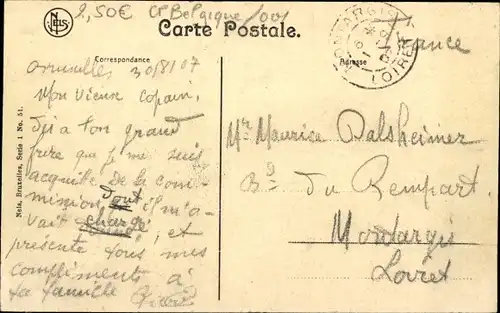 2,50€ CP Belgique/001
Carte Postale.
Correspondance
Adresse
MONTARGIS
LOIRET
France
Bruxelles 30/8/07
Mon vieux Copain,
Dis à ton grand
frère que je me suis
acquitté de la com-
mission dont il m'a-
vait chargé, et
présente tous mes
compliments à
ta famille
Mr Maurice Dalsheimer
Bd du Rempart
Montargis
Loiret
Nels, Bruxelles, Serie 1 No. 51.